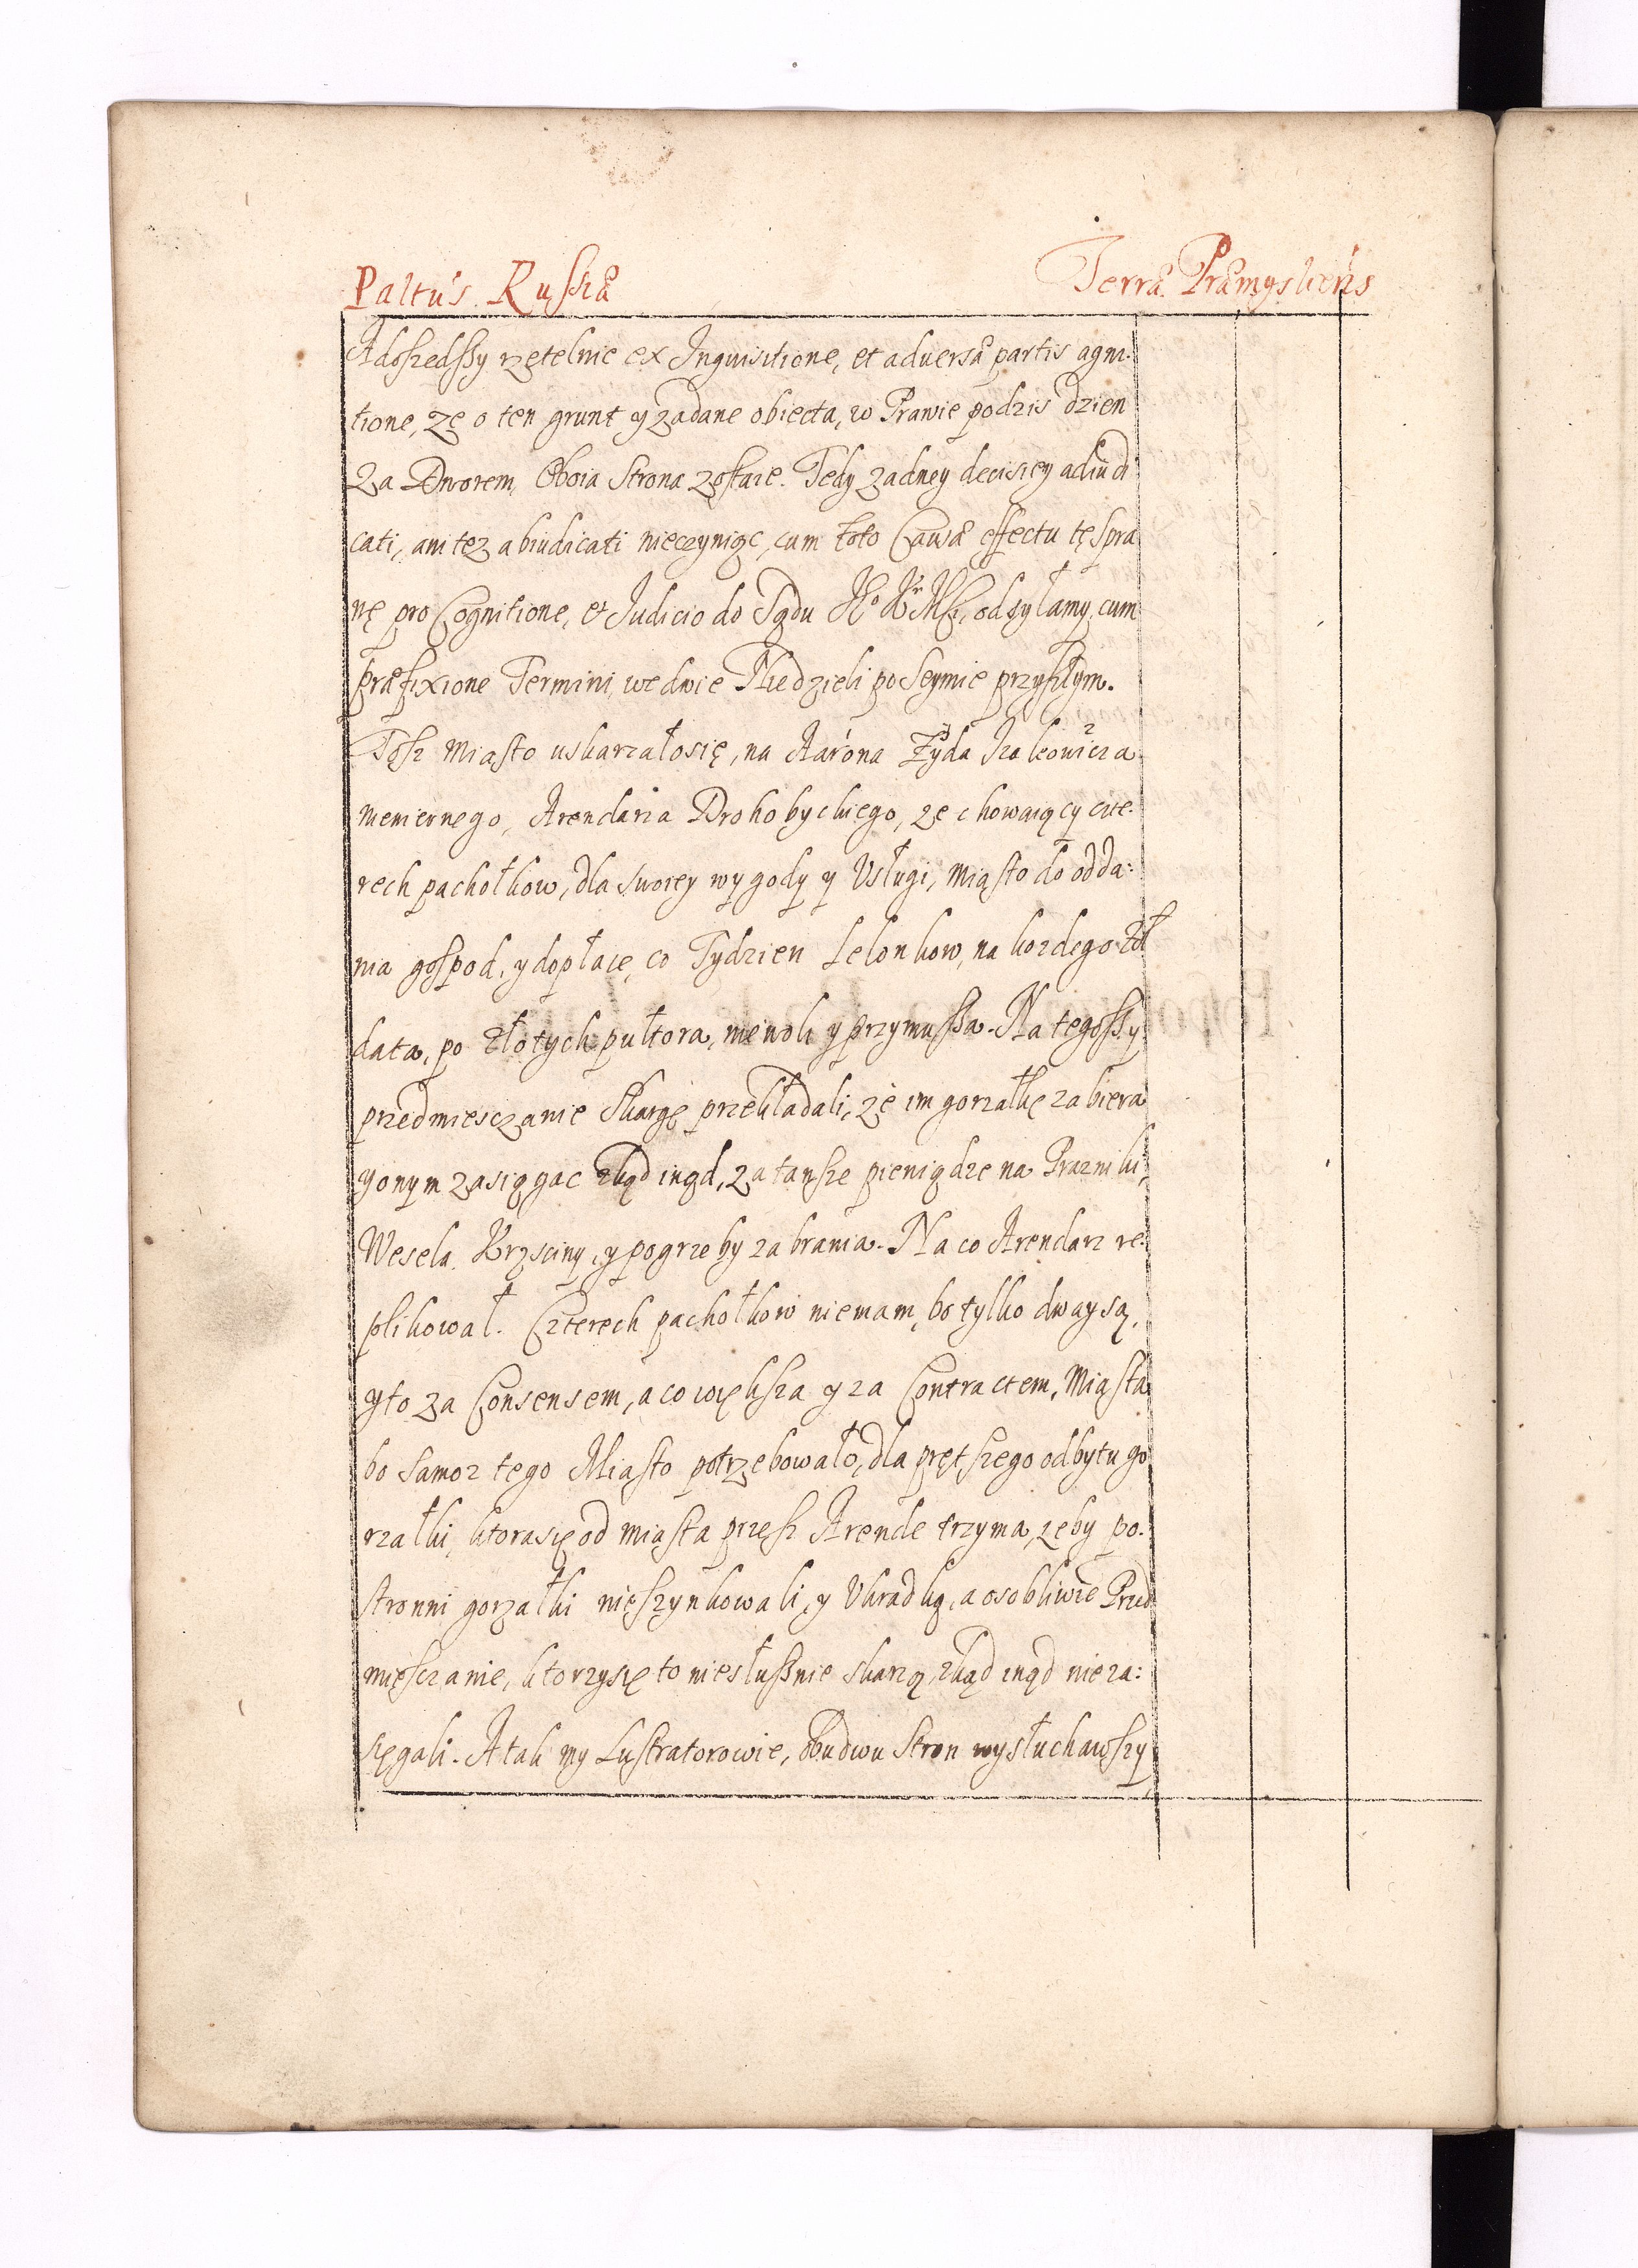 Paltus Russiæ
Terræ Præmysliens
A doszedszy rzetelnie ex Inquisitione, et adversæ partis agni-
tione, zę o ten grunt y zadane obiecta, w Prawie podzis dzien
Za Dworem, Oboia Strona zostaie. Tedy zadney decisiey adiudi
cati, ani tez abiudicati nieczyniąc, cum toto Causæ effectu tę spra
wę pro Cognitione, et Judicio do Sądu Jº Kr Msci, odsyłamy, cum
præfixione Termini, we dwie Niedzieli po Seymie przyszłym.
Tosz Miasto uskarzałosię, na Aarona Zyda Izakowicza
niewiernego, Arendarza Drohobyckiego, ze chowaiący czte-
rech pachołkow, dla swoiey wygody y Usługi, Miasto do odda:
nia gospod, y dopłacę, co Tydzien Lelonkow, na kozdego Zoł
data, po złotych pułtora, niewoli y przymussa. Na tegoszsy
przedmiesczanie Skargę przekładali, zę im gorzałkę zabiera
y onym zasięgac zkąd inąd, za tansze pieniądze na Prazniki,
Wesela, Krzsciny, y pogrzeby zabrania. Na co Arendarz re-
plikował. Czterech pachołkow niemam, bo tylko dway są,
y to za Consensem, a co większa y za Contractem, Miasta
bo Samoz tego Miasto potrzebowało, dla prętszego odbytu go
rzałki, ktorasię od miasta przesz Arende trzyma, zeby po-
stronni gorzałki nieszynkowali, y Ukradką, a osobliwie Przed
miesczanie, ktorzysię to niesłusznie skarzą, zkąd inąd nieza:
sięgali. A tak my Lustratorowie, Obudwu Stron wysłuchawszy